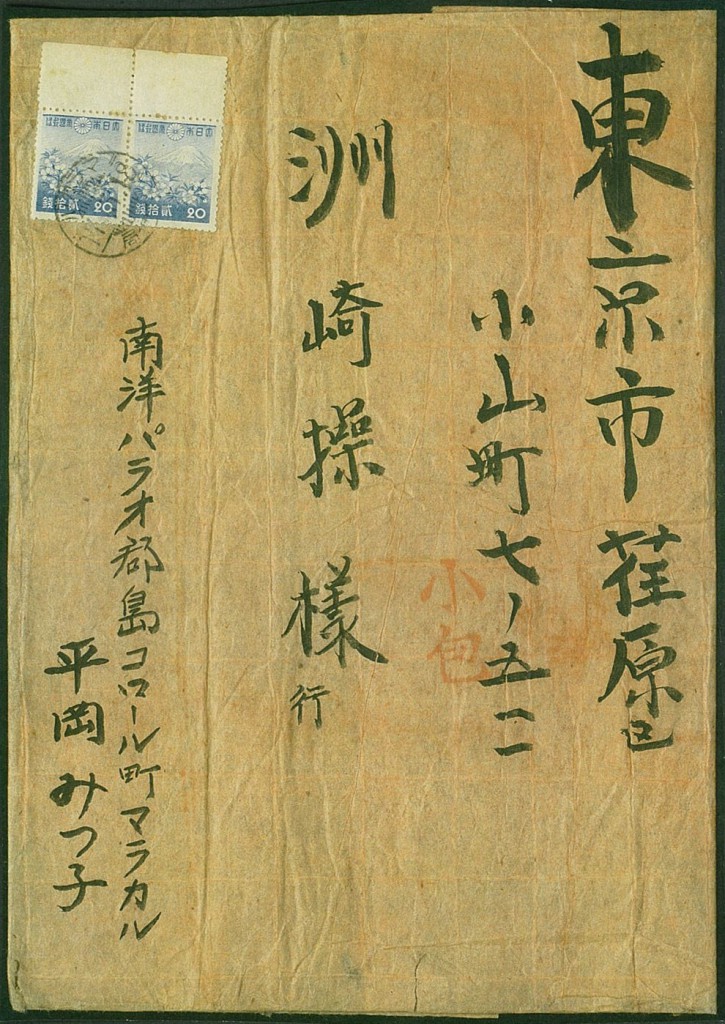 東京市荏原区
小山町七ノ五二
洲崎操様行
南洋パラオ郡島コロール町マラカル
平岡みつ子
小包
大日本帝國郵便
貳拾錢 20
大日本帝國郵便
貳拾錢 20